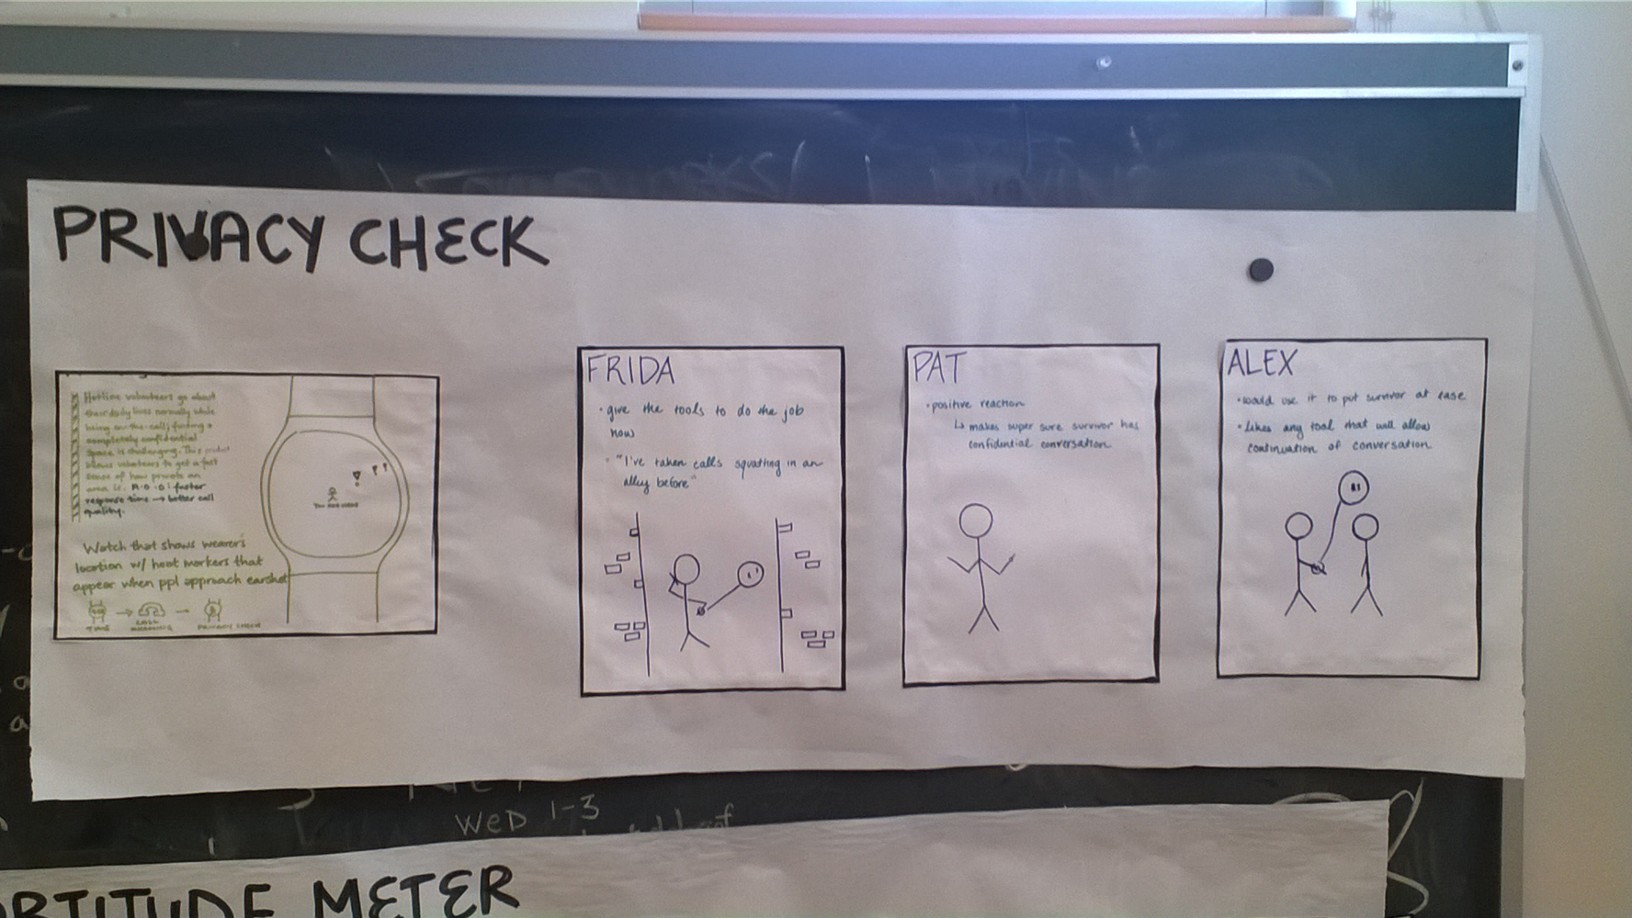 PRIVACY CHECK
Hotline volunteers go about
their daily lives normally while
being on-the-call; finding a
completely confidential
space is challenging. This product
allows volunteers to get a fast
sense of how private an
area is. faster
response time → better call
quality.
Watch that shows wearer's
location w/ heat markers that
appear when ppl approach earshot
TIME → CALL → PRIVACY CHECK
FRIDA
• give the tools to do the job
now
• "I've taken calls squatting in an
alley before"
PAT
• positive reaction
↳ makes super sure survivor has
confidential conversation
ALEX
• would use it to put survivor at ease
• likes any tool that will allow
continuation of conversation
WED 1-3
METER